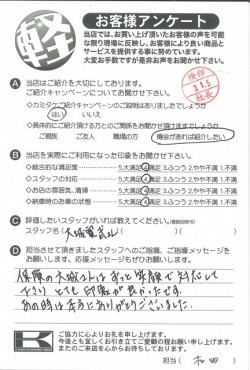 軽
お客様アンケート
当店では、お買い上げ頂いたお客様の声を可能な限り現場に反映し、お客様により良い商品とサービスを提供する事に努めています。
大変お手数ですが是非お声をお聞かせ下さい。
検印
31.5
A 当店はご紹介を大切にしております。
ご紹介キャンペーンについてお聞かせ下さい。
◇カミタケご紹介キャンペーンのご説明はありましたでしょうか
はい いいえ
◇具体的にご紹介頂ける方とのご関係をお聞かせ頂けますでしょうか
ご親族 ご友人 職場の方 機会があれば紹介したい
B 当店を実際にご利用になった印象をお聞かせ下さい。
◇総合的な満足度 5.大満足 4.満足 3.ふつう 2.やや不満 1.不満
◇スタッフの対応 5.大満足 4.満足 3.ふつう 2.やや不満 1.不満
◇お店の雰囲気、清掃 5.大満足 4.満足 3.ふつう 2.やや不満 1.不満
◇納車時のお車の状態 5.大満足 4.満足 3.ふつう 2.やや不満 1.不満
C 評価したいスタッフがいれば教えてください。(複数回答可)
スタッフ名 大城
D 担当させて頂きましたスタッフへのご感想、ご指摘メッセージをお願いします。応援メッセージもぜひお願いします。
保険の大城さんはずっと笑顔で対応して
下さり とても印象が良かったです。
あの時は本当にありがとうございました。
K
ご協力に心よりお礼を申し上げます。
今後とも宜しくお引き立てご愛顧の程お願い申し上げます。
またのご来店を心からお待ちしております。
担当( 和田 )